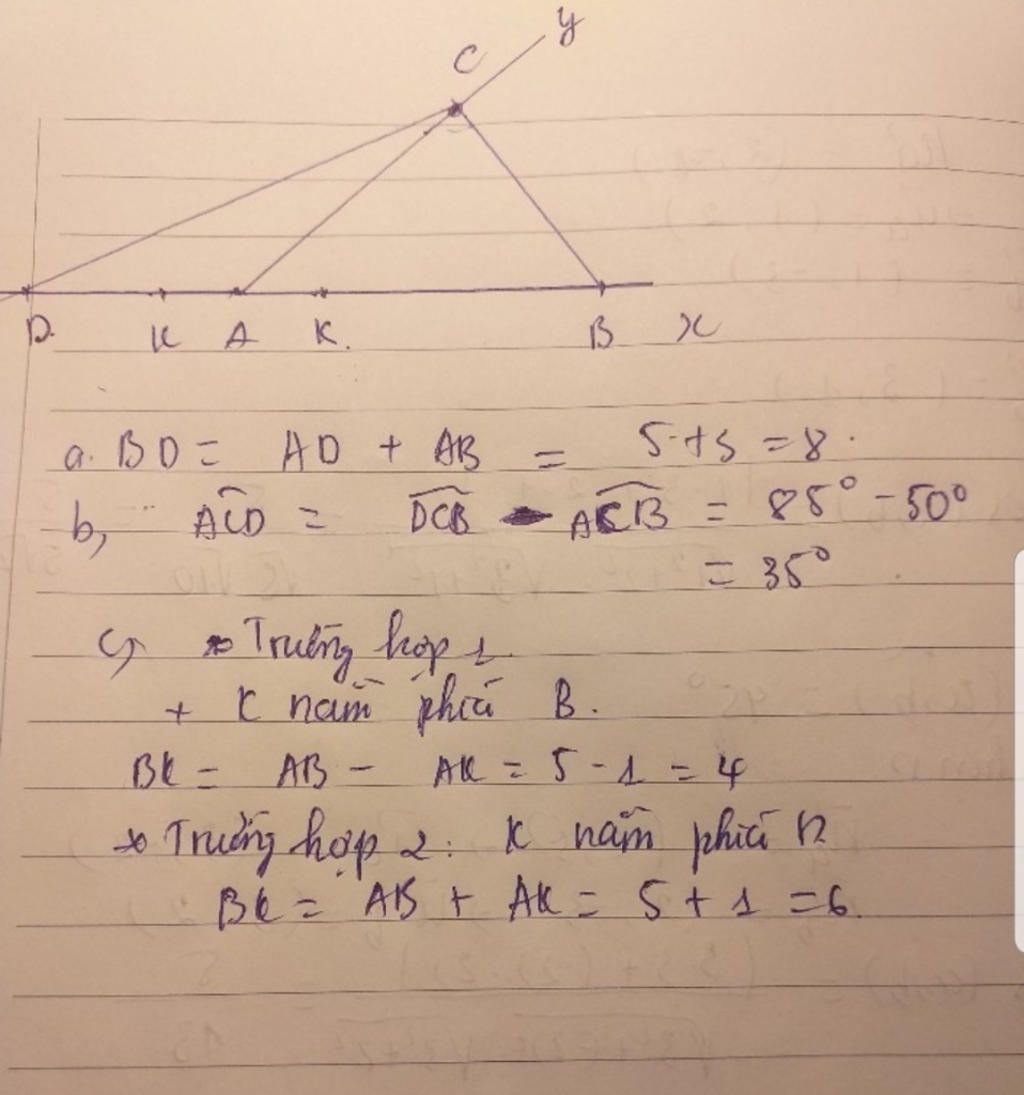 y
C
D. K A K. B x
a. BD = AD + AB = 5+3 = 8.
b, ACD = DCB - ACB = 85° - 50°
= 35°
c, * Trường hợp 1
+ K nằm phía B.
BK = AB - AK = 5 - 1 = 4
* Trường hợp 2: K nằm phía D
BK = AB + AK = 5 + 1 = 6.